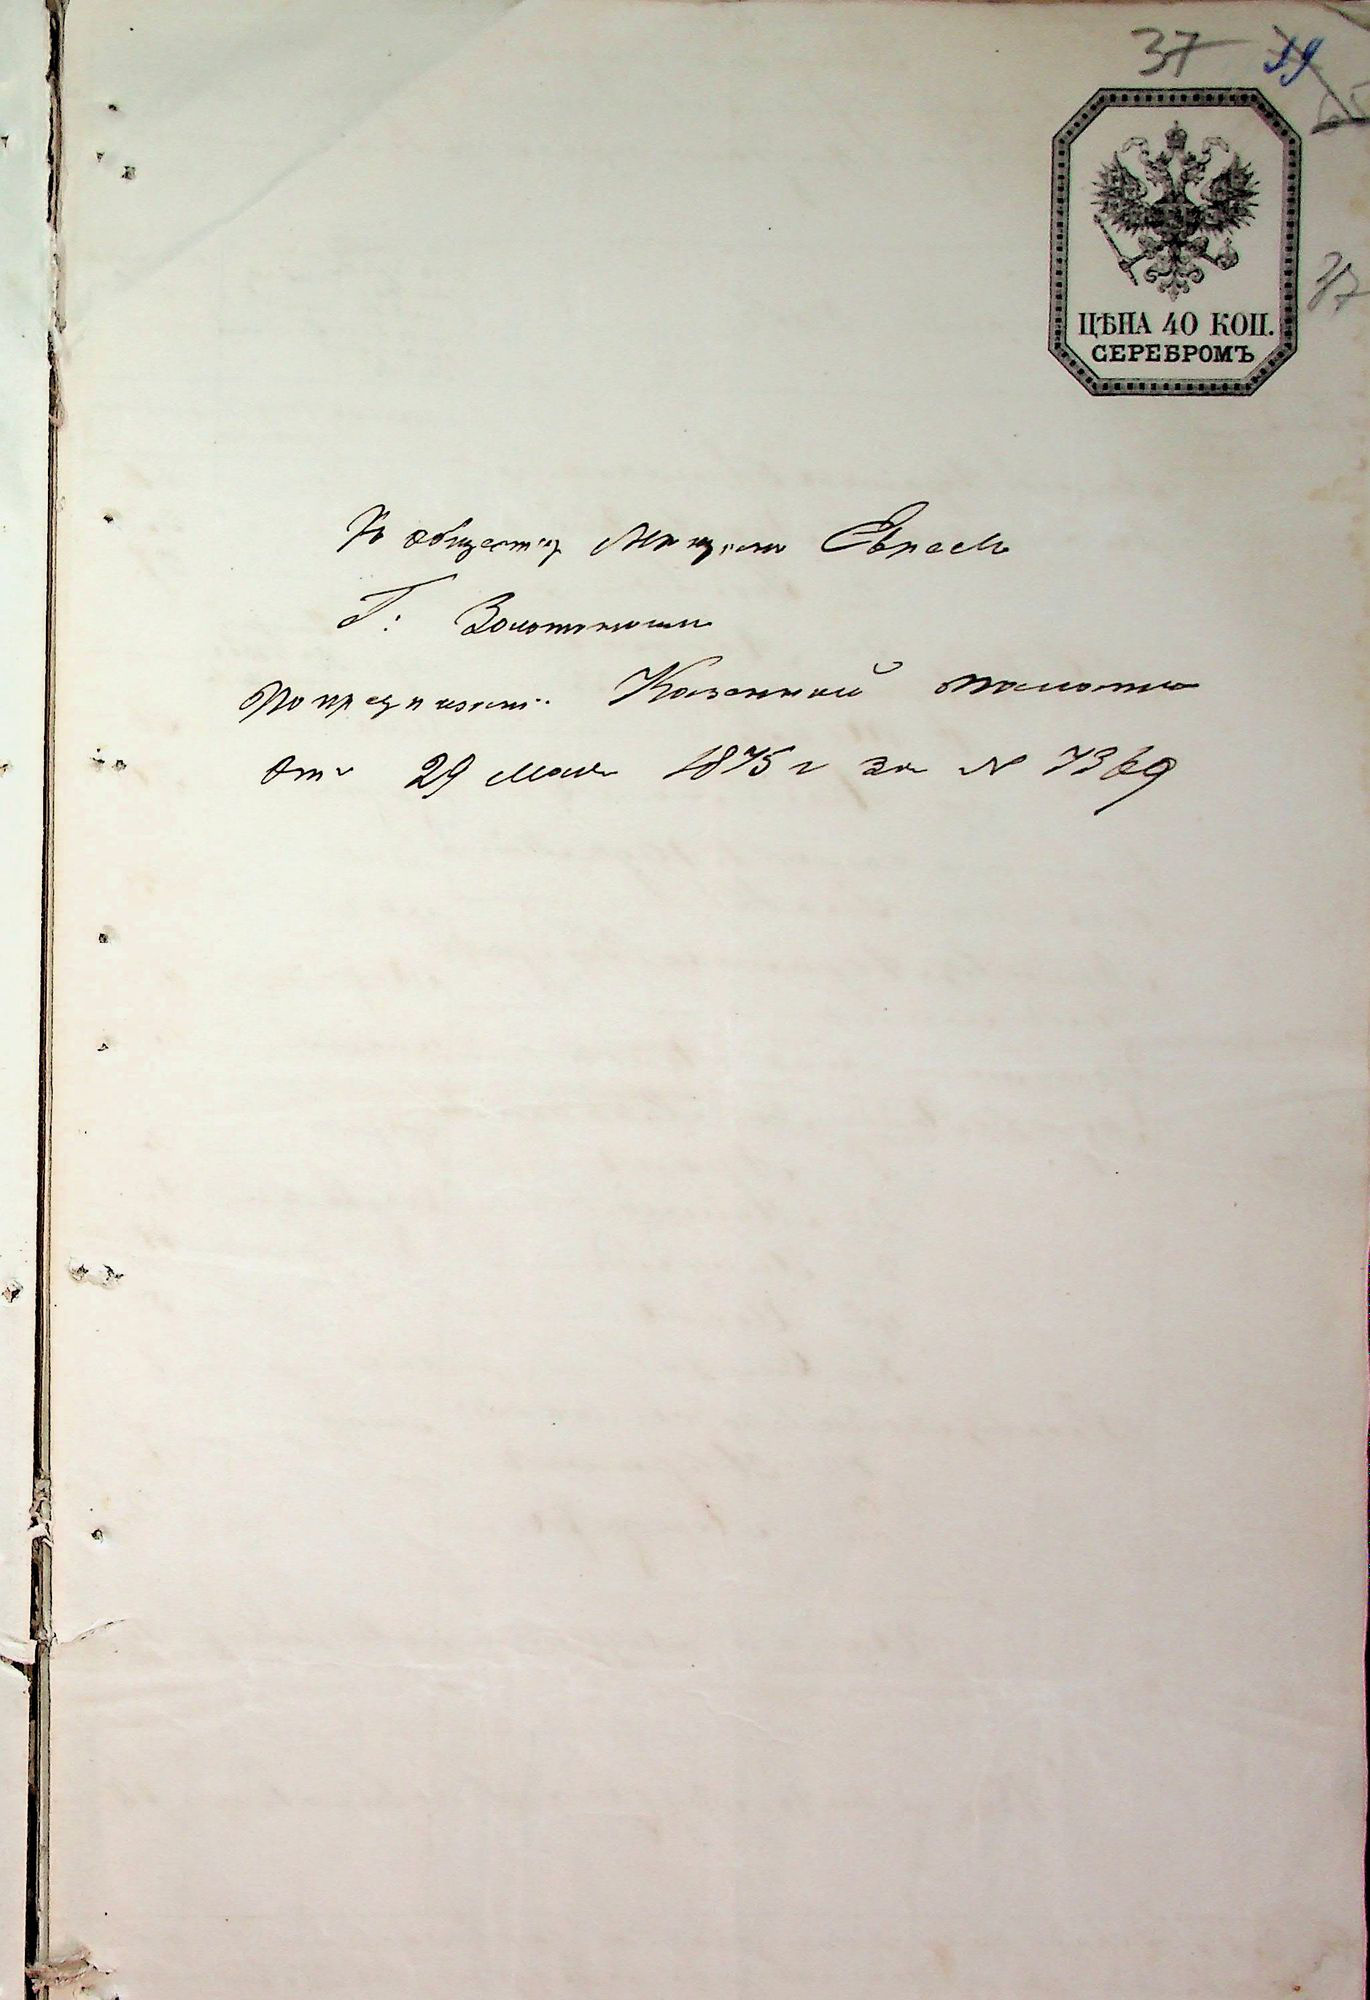 37 39
37
ЦѢНА 40 КОП.
СЕРЕБРОМЪ
Къ обществу Мещанъ Евреевъ
Г: Золотоноши
По предписанію Казенной палаты
Отъ 29 Мая 1875 г за № 7369